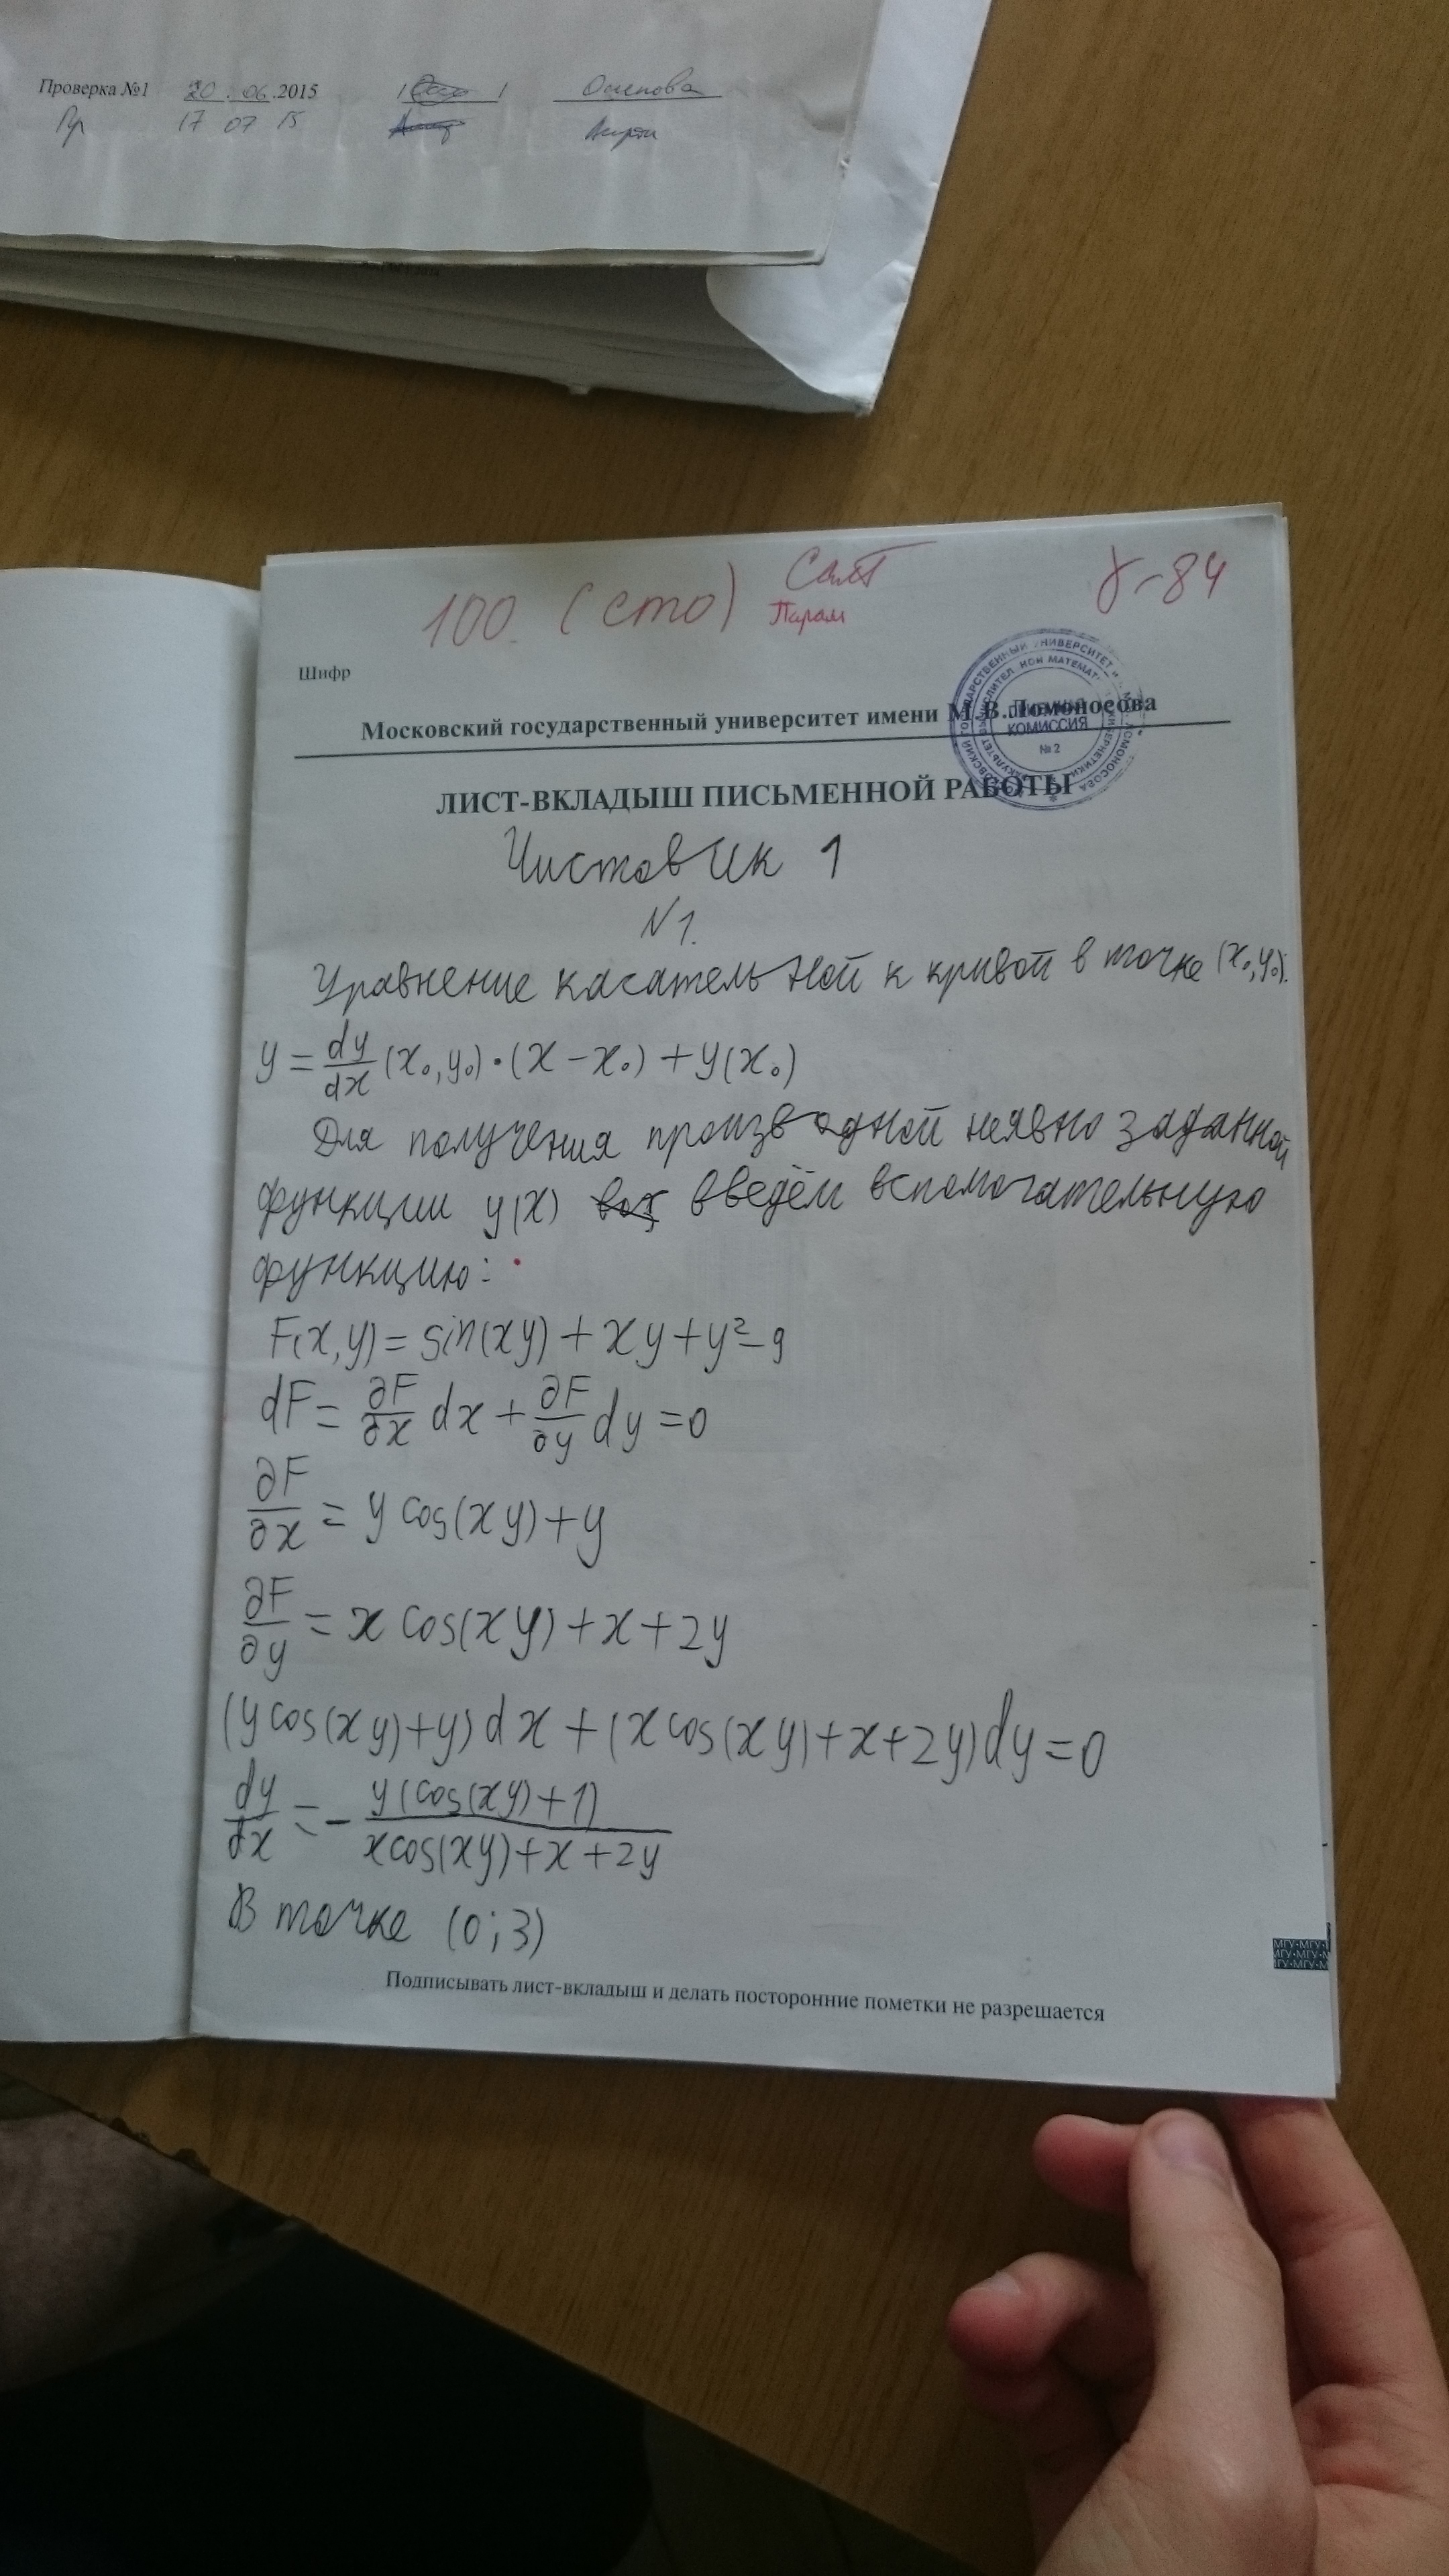 Проверка №1 20.06.2015
17 07 15
100. (сто)
γ-84
Шифр
Московский государственный университет имени М.В.Ломоносова
КОМИССИЯ
№ 2
ЛИСТ-ВКЛАДЫШ ПИСЬМЕННОЙ РАБОТЫ
Чистовик 1
N1.
Уравнение касательной к кривой в точке (x₀,y₀):
y = dy/dx (x₀,y₀)·(x − x₀) + y(x₀)
Для получения производной неявно заданной
функции y(x) введём вспомогательную
функцию:
F(x,y) = sin(xy) + xy + y² − 9
dF = ∂F/∂x dx + ∂F/∂y dy = 0
∂F/∂x = y cos(xy) + y
∂F/∂y = x cos(xy) + x + 2y
(y cos(xy) + y) dx + (x cos(xy) + x + 2y) dy = 0
dy/dx = − y(cos(xy) + 1) / x cos(xy) + x + 2y
В точке (0;3)
Подписывать лист-вкладыш и делать посторонние пометки не разрешается